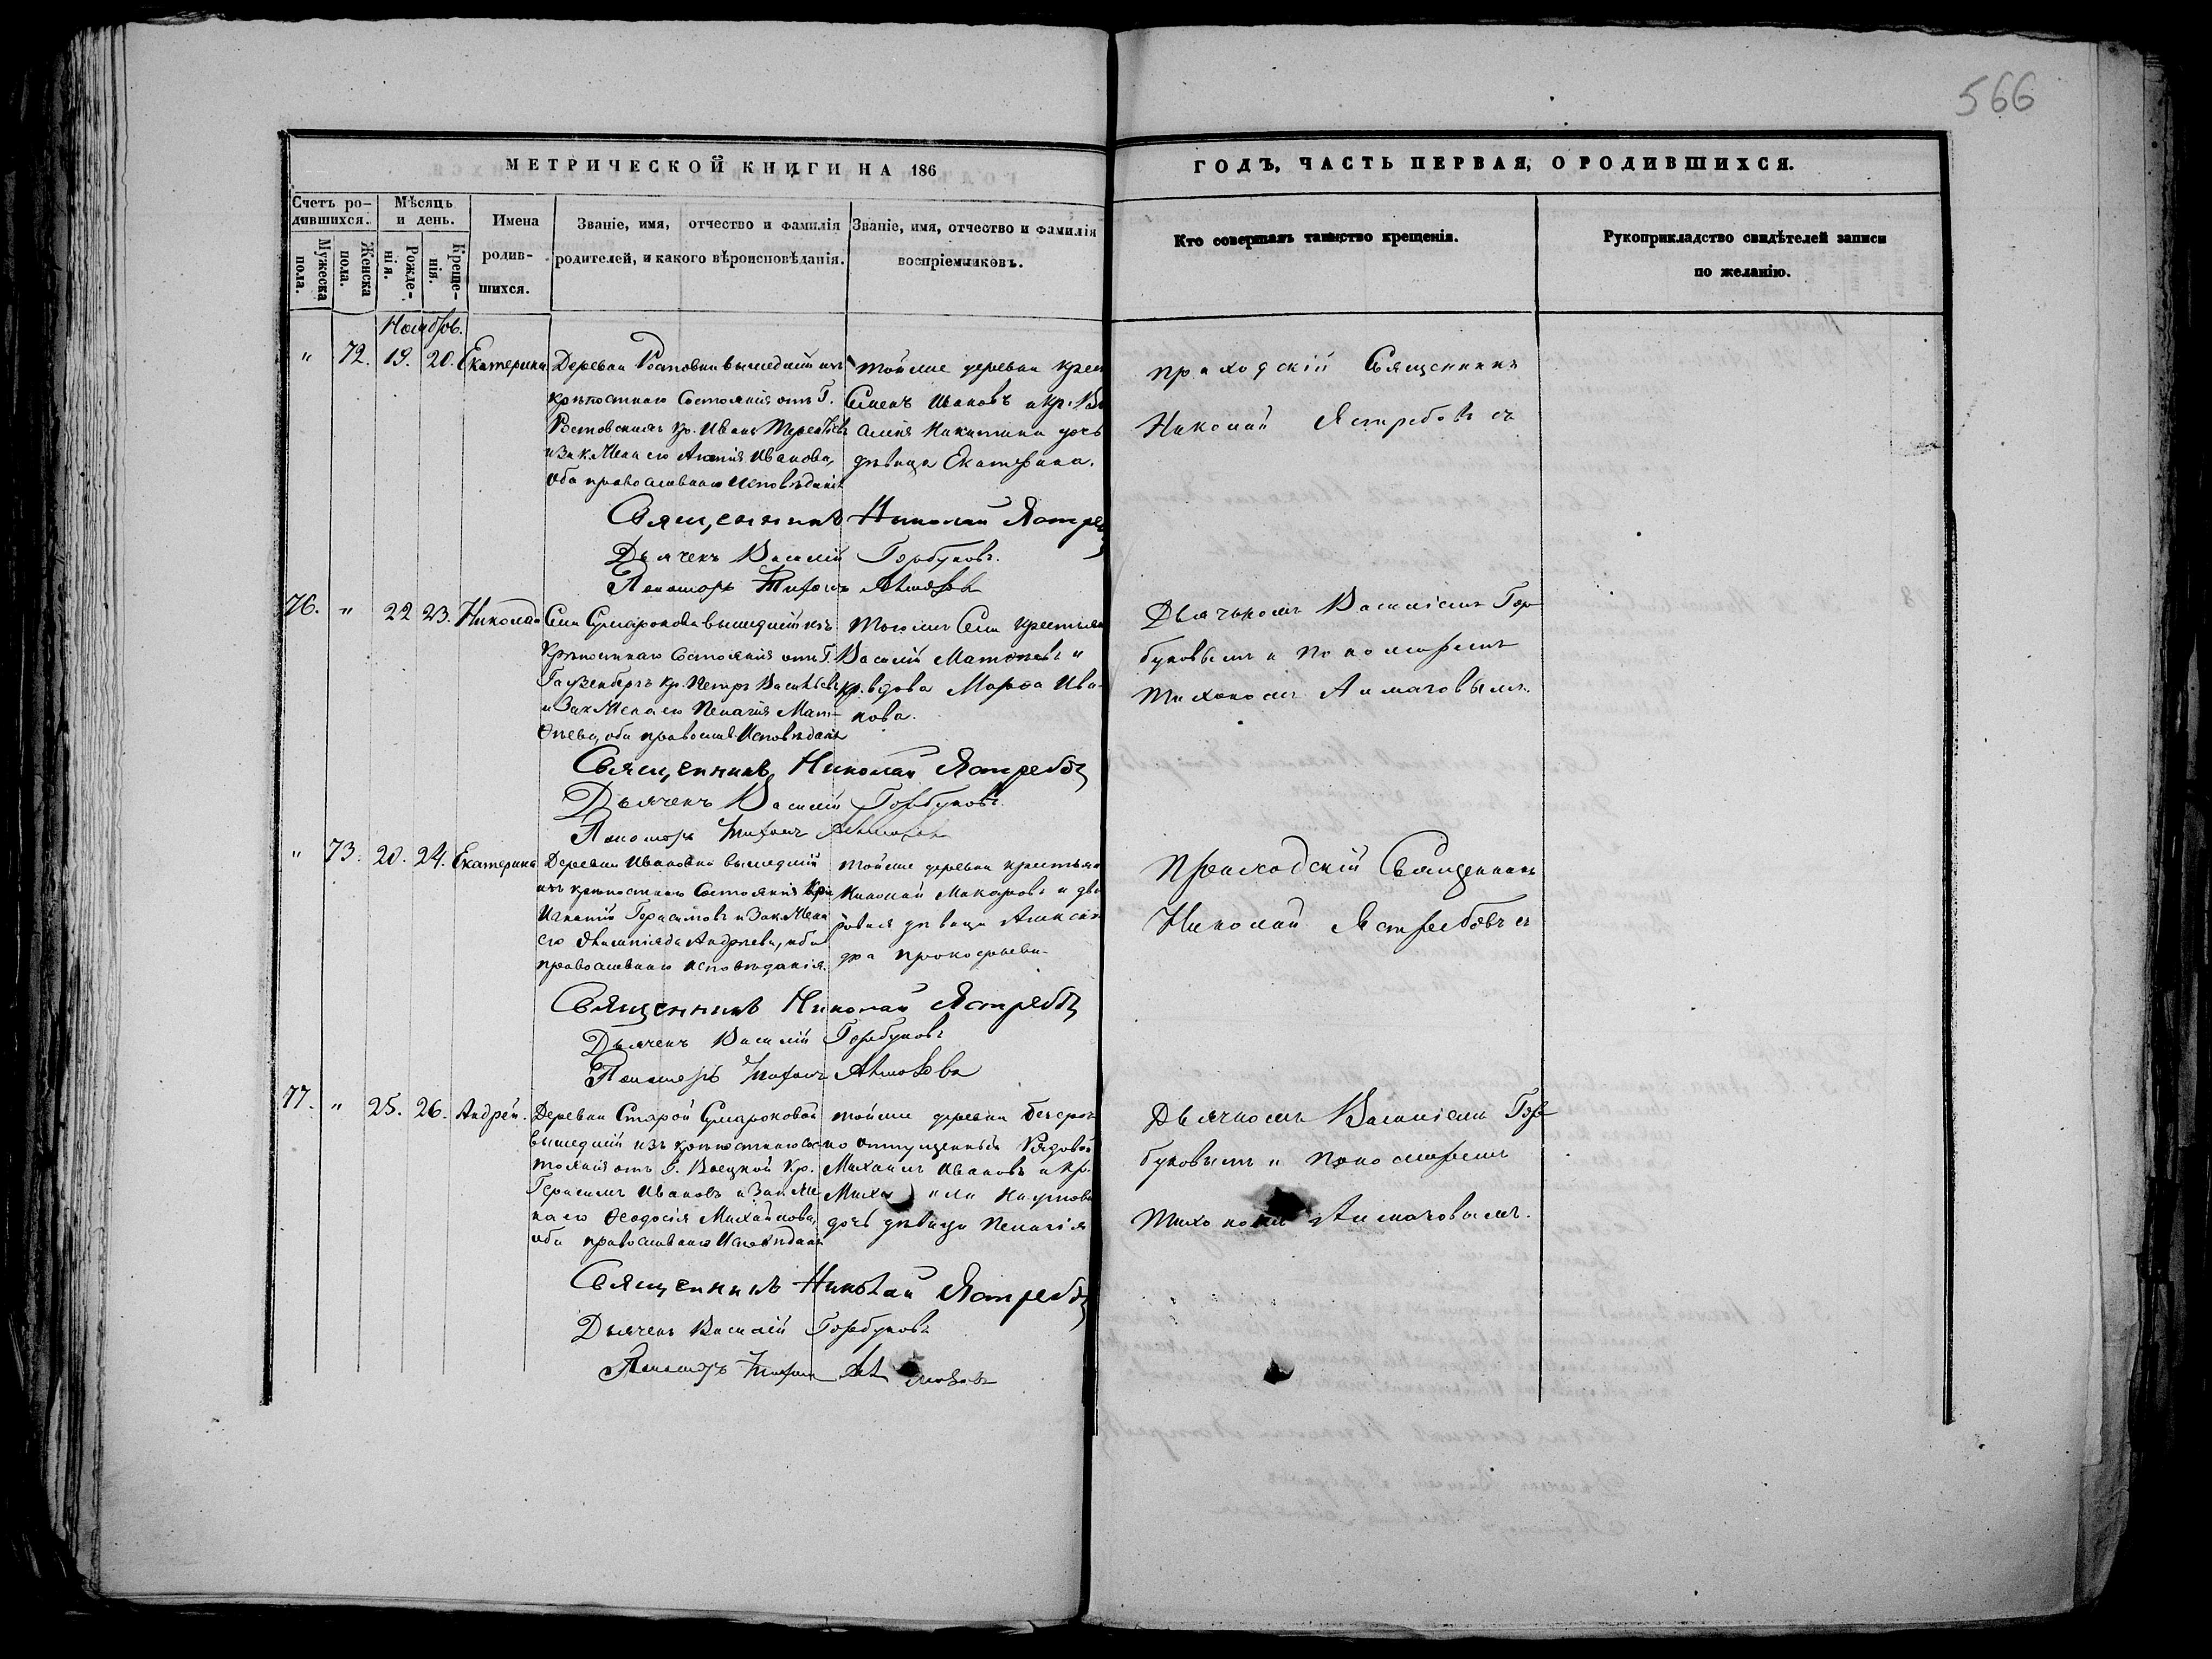 566
МЕТРИЧЕСКОЙ КНИГИ НА 186
ГОДЪ, ЧАСТЬ ПЕРВАЯ, О РОДИВШИХСЯ.
Счетъ ро-
дившихся.
Мужеска пола.
Женска пола.
Мѣсяцъ
и день.
Рожде-
нія.
Креще-
нія.
Имена
родив-
шихся.
Званіе, имя, отчество и фамилія
родителей, и какого вѣроисповѣданія.
Званіе, имя, отчество и фамилія
воспріемниковъ.
Кто совершалъ таинство крещенія.
Рукоприкладство свидѣтелей записи
по желанію.
Ноябрь.
" 72. 19. 20. Екатерина
Деревни Ростовки вышедшій изъ
крѣпостнаго состоянія отъ Г.
Кр. Иванъ Терентьевъ
и зак. жена его Иванова,
оба православнаго исповѣданія
тойже деревни крест
Семенъ Ивановъ и кр. Ва
силія Никитина дочь
дѣвица Екатерина.
приходскій Священникъ
Николай Ястребовъ съ
Священникъ Николай Ястре
Дьячекъ Василій Горбуновъ.
Пономарь Тихонъ
76. " 22 23. Николай
Села Сумарокова вышедшій изъ
крѣпостнаго состоянія отъ Г.
кр. Петръ Васильевъ
и зак. жена его Пелагія Мат-
ѳеева, оба православ. исповѣданія
тогоже села крестьян
Василій Матѳеевъ и
кр. вдова Марѳа Ива-
нова.
Дьячькомъ Василіемъ Гор-
буновымъ и пономаремъ
Тихономъ
Священникъ Николай Ястребовъ
Дьячекъ Василій Горбуновъ.
Пономарь Тихонъ
" 73. 20. 24. Екатерина
Деревни Ивановки вышедшій
изъ крѣпостнаго состоянія кр.
Игнатій Герасимовъ и зак. жена
его Андреева, оба
православнаго исповѣданія.
тойже деревни крестьян
Николай Макаровъ и дво
ровая дѣвица Алексан
дра Прокофьева.
Приходскій Священникъ
Николай Ястребовъ съ
Священникъ Николай Ястребовъ
Дьячекъ Василій Горбуновъ
Пономарь Тихонъ
77. " 25. 26. Андрей.
Деревни Старой Сумароковой
вышедшій изъ крѣпостнаго со
стоянія отъ Г. Кр.
Герасимъ Ивановъ и зак. же
на его Ѳеодосія Михайлова,
оба православнаго исповѣданія
тойже деревни безсроч
но отпущенный Рядовой
Михаилъ Ивановъ и кр.
Миха ила Наумова
дочь дѣвица Пелагія
Дьячкомъ Василіемъ Гор-
буновымъ и пономаремъ
Тихономъ
Священникъ Николай Ястребовъ
Дьячекъ Василій Горбуновъ
Пономарь Тихонъ